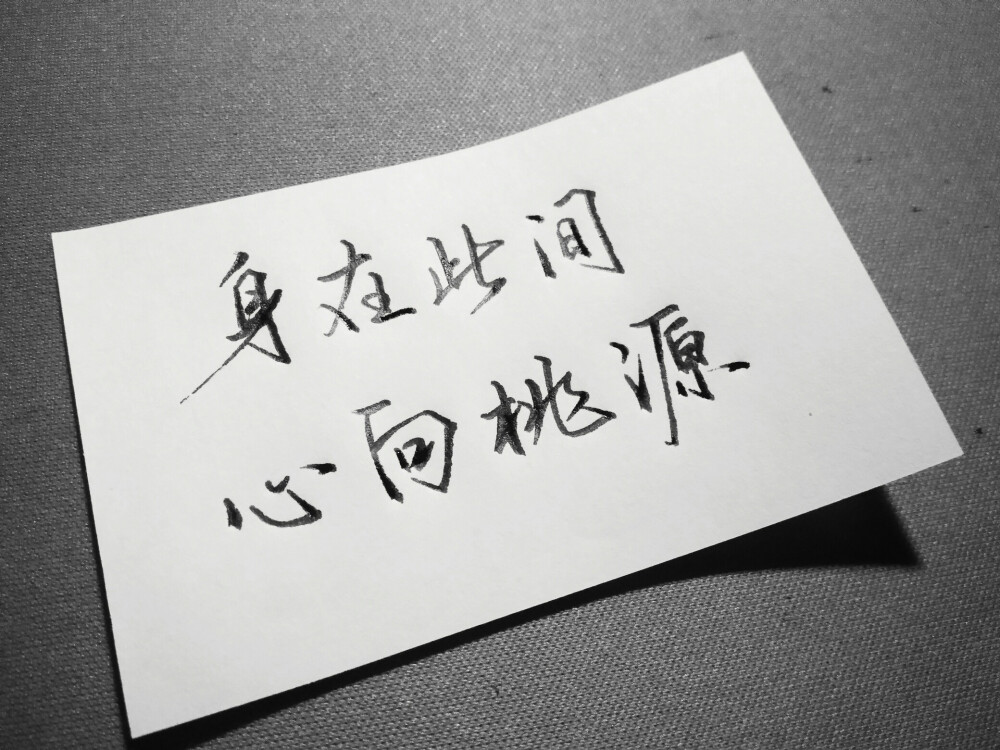 身在此间
心向桃源